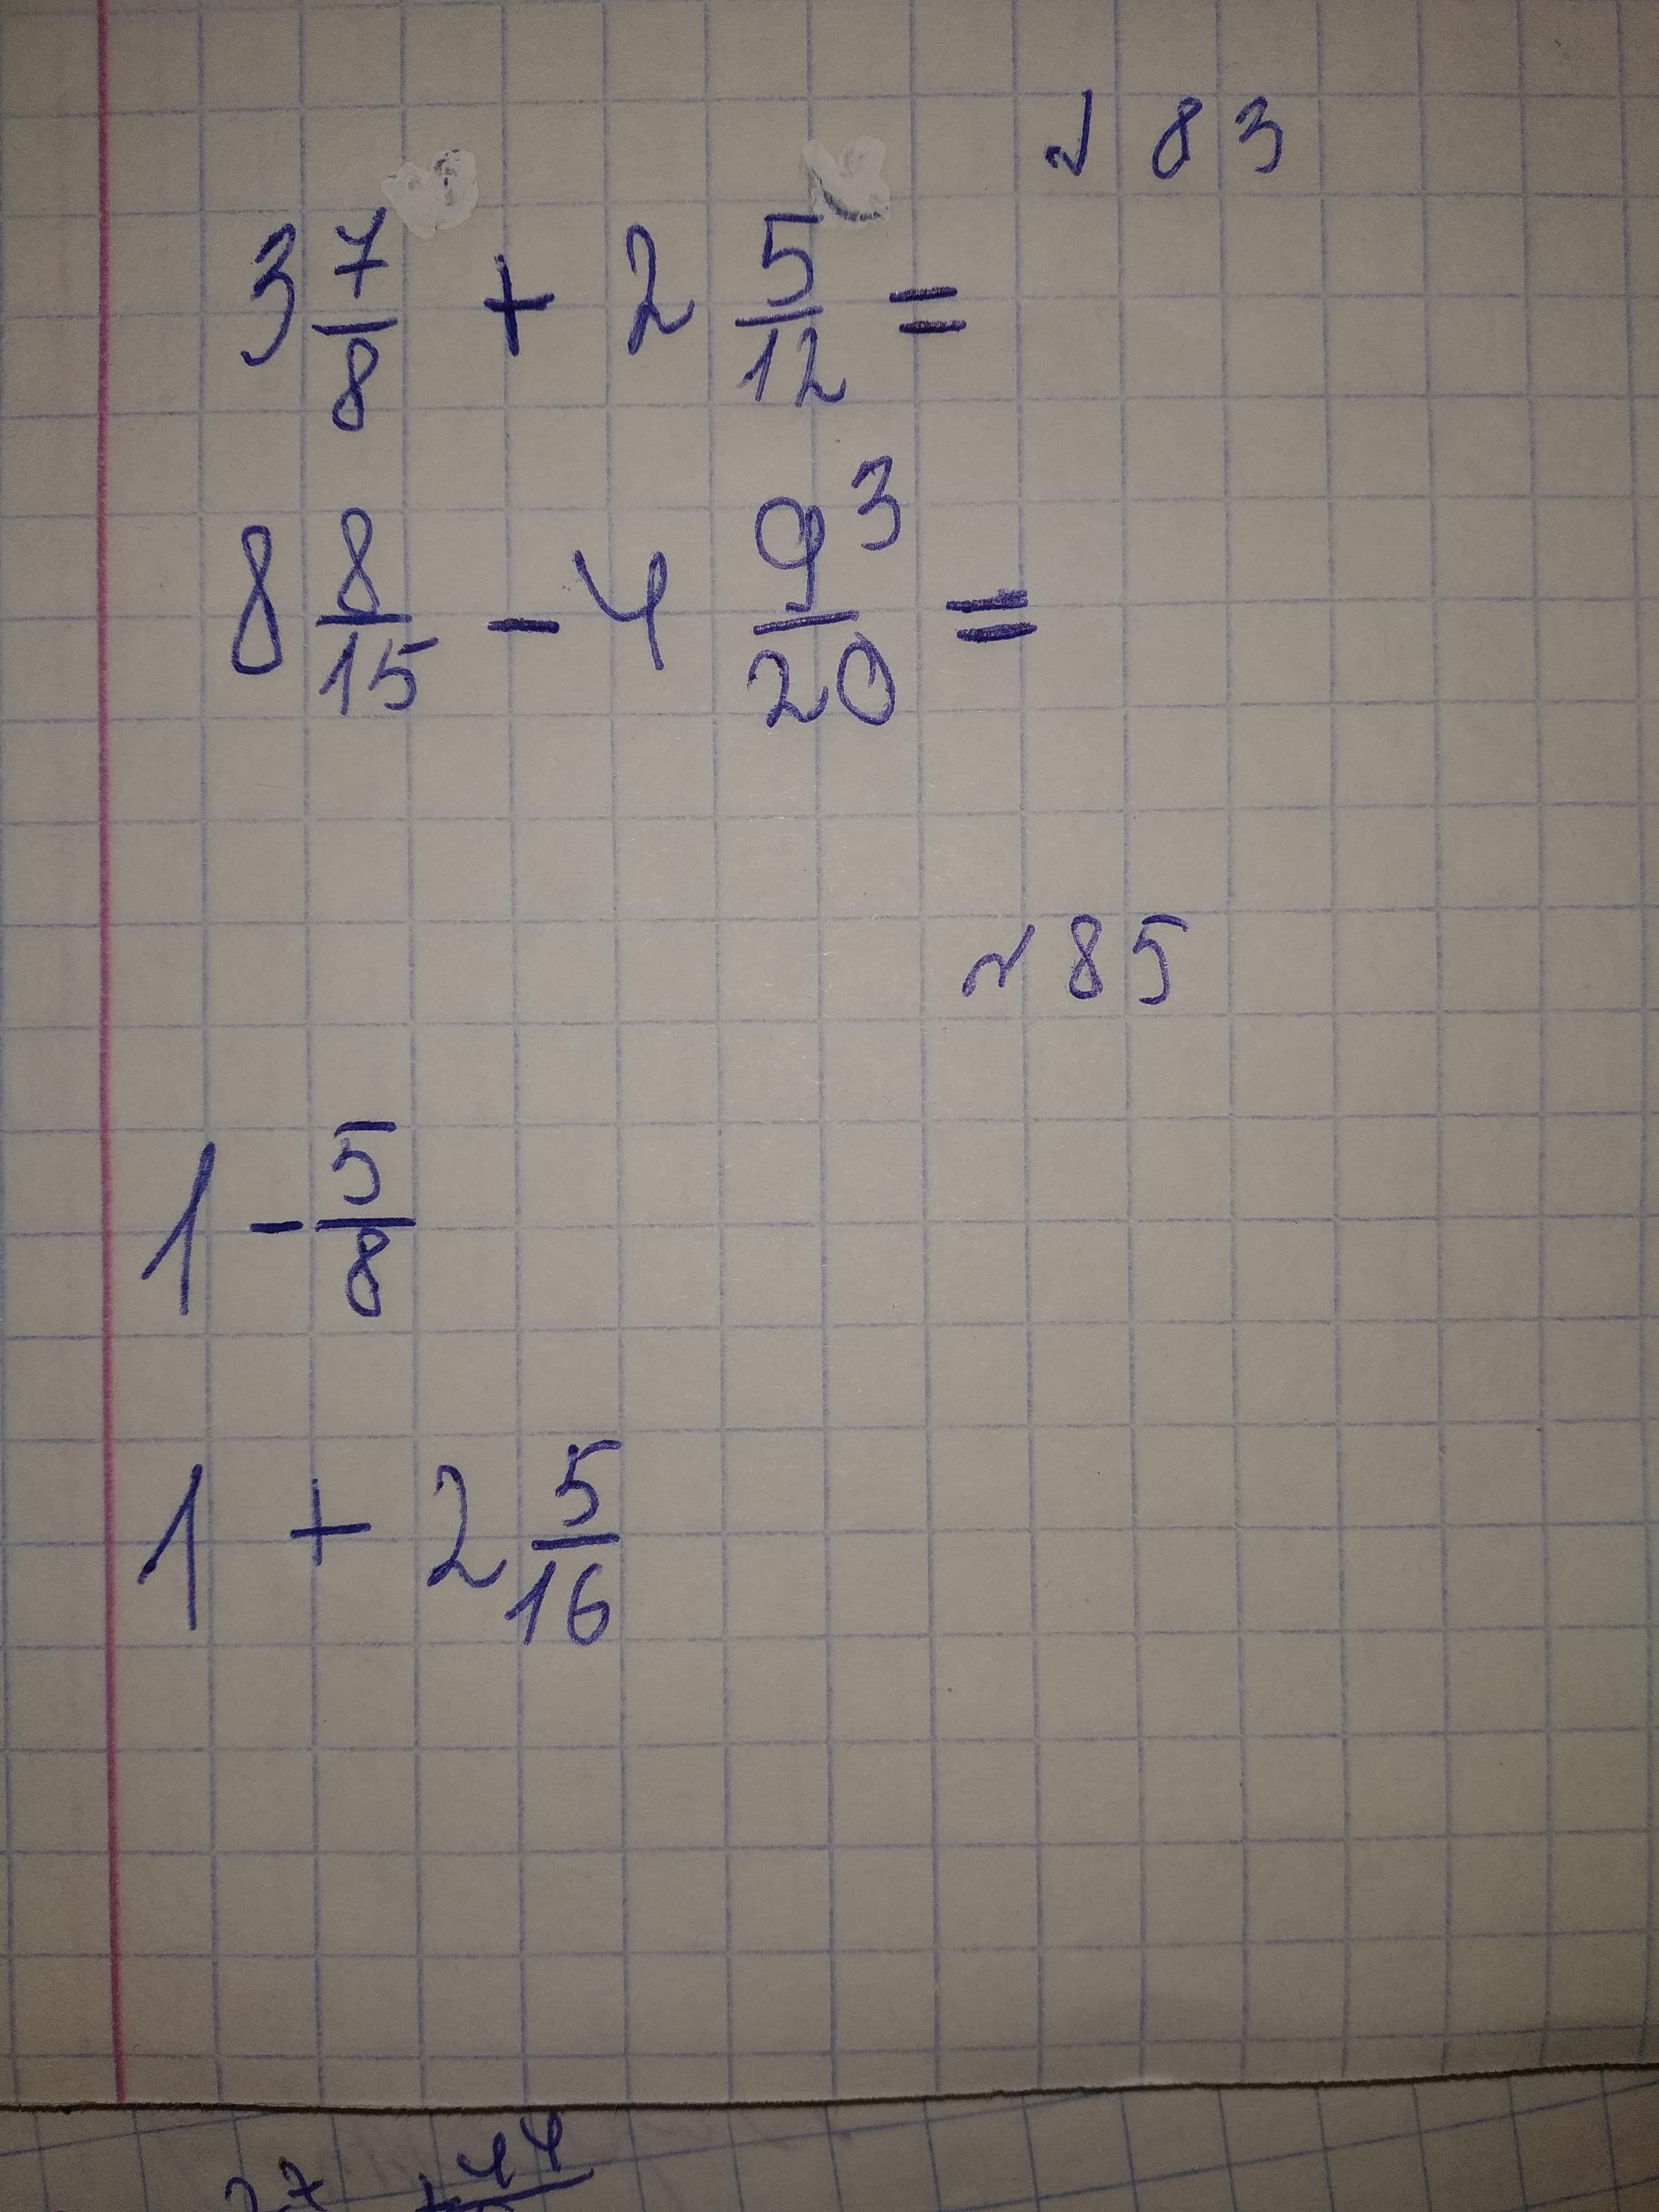 № 83
3 7/8 + 2 5/12 =
8 8/15 - 4 9³/20 =
№ 85
1 - 5/8
1 + 2 5/16